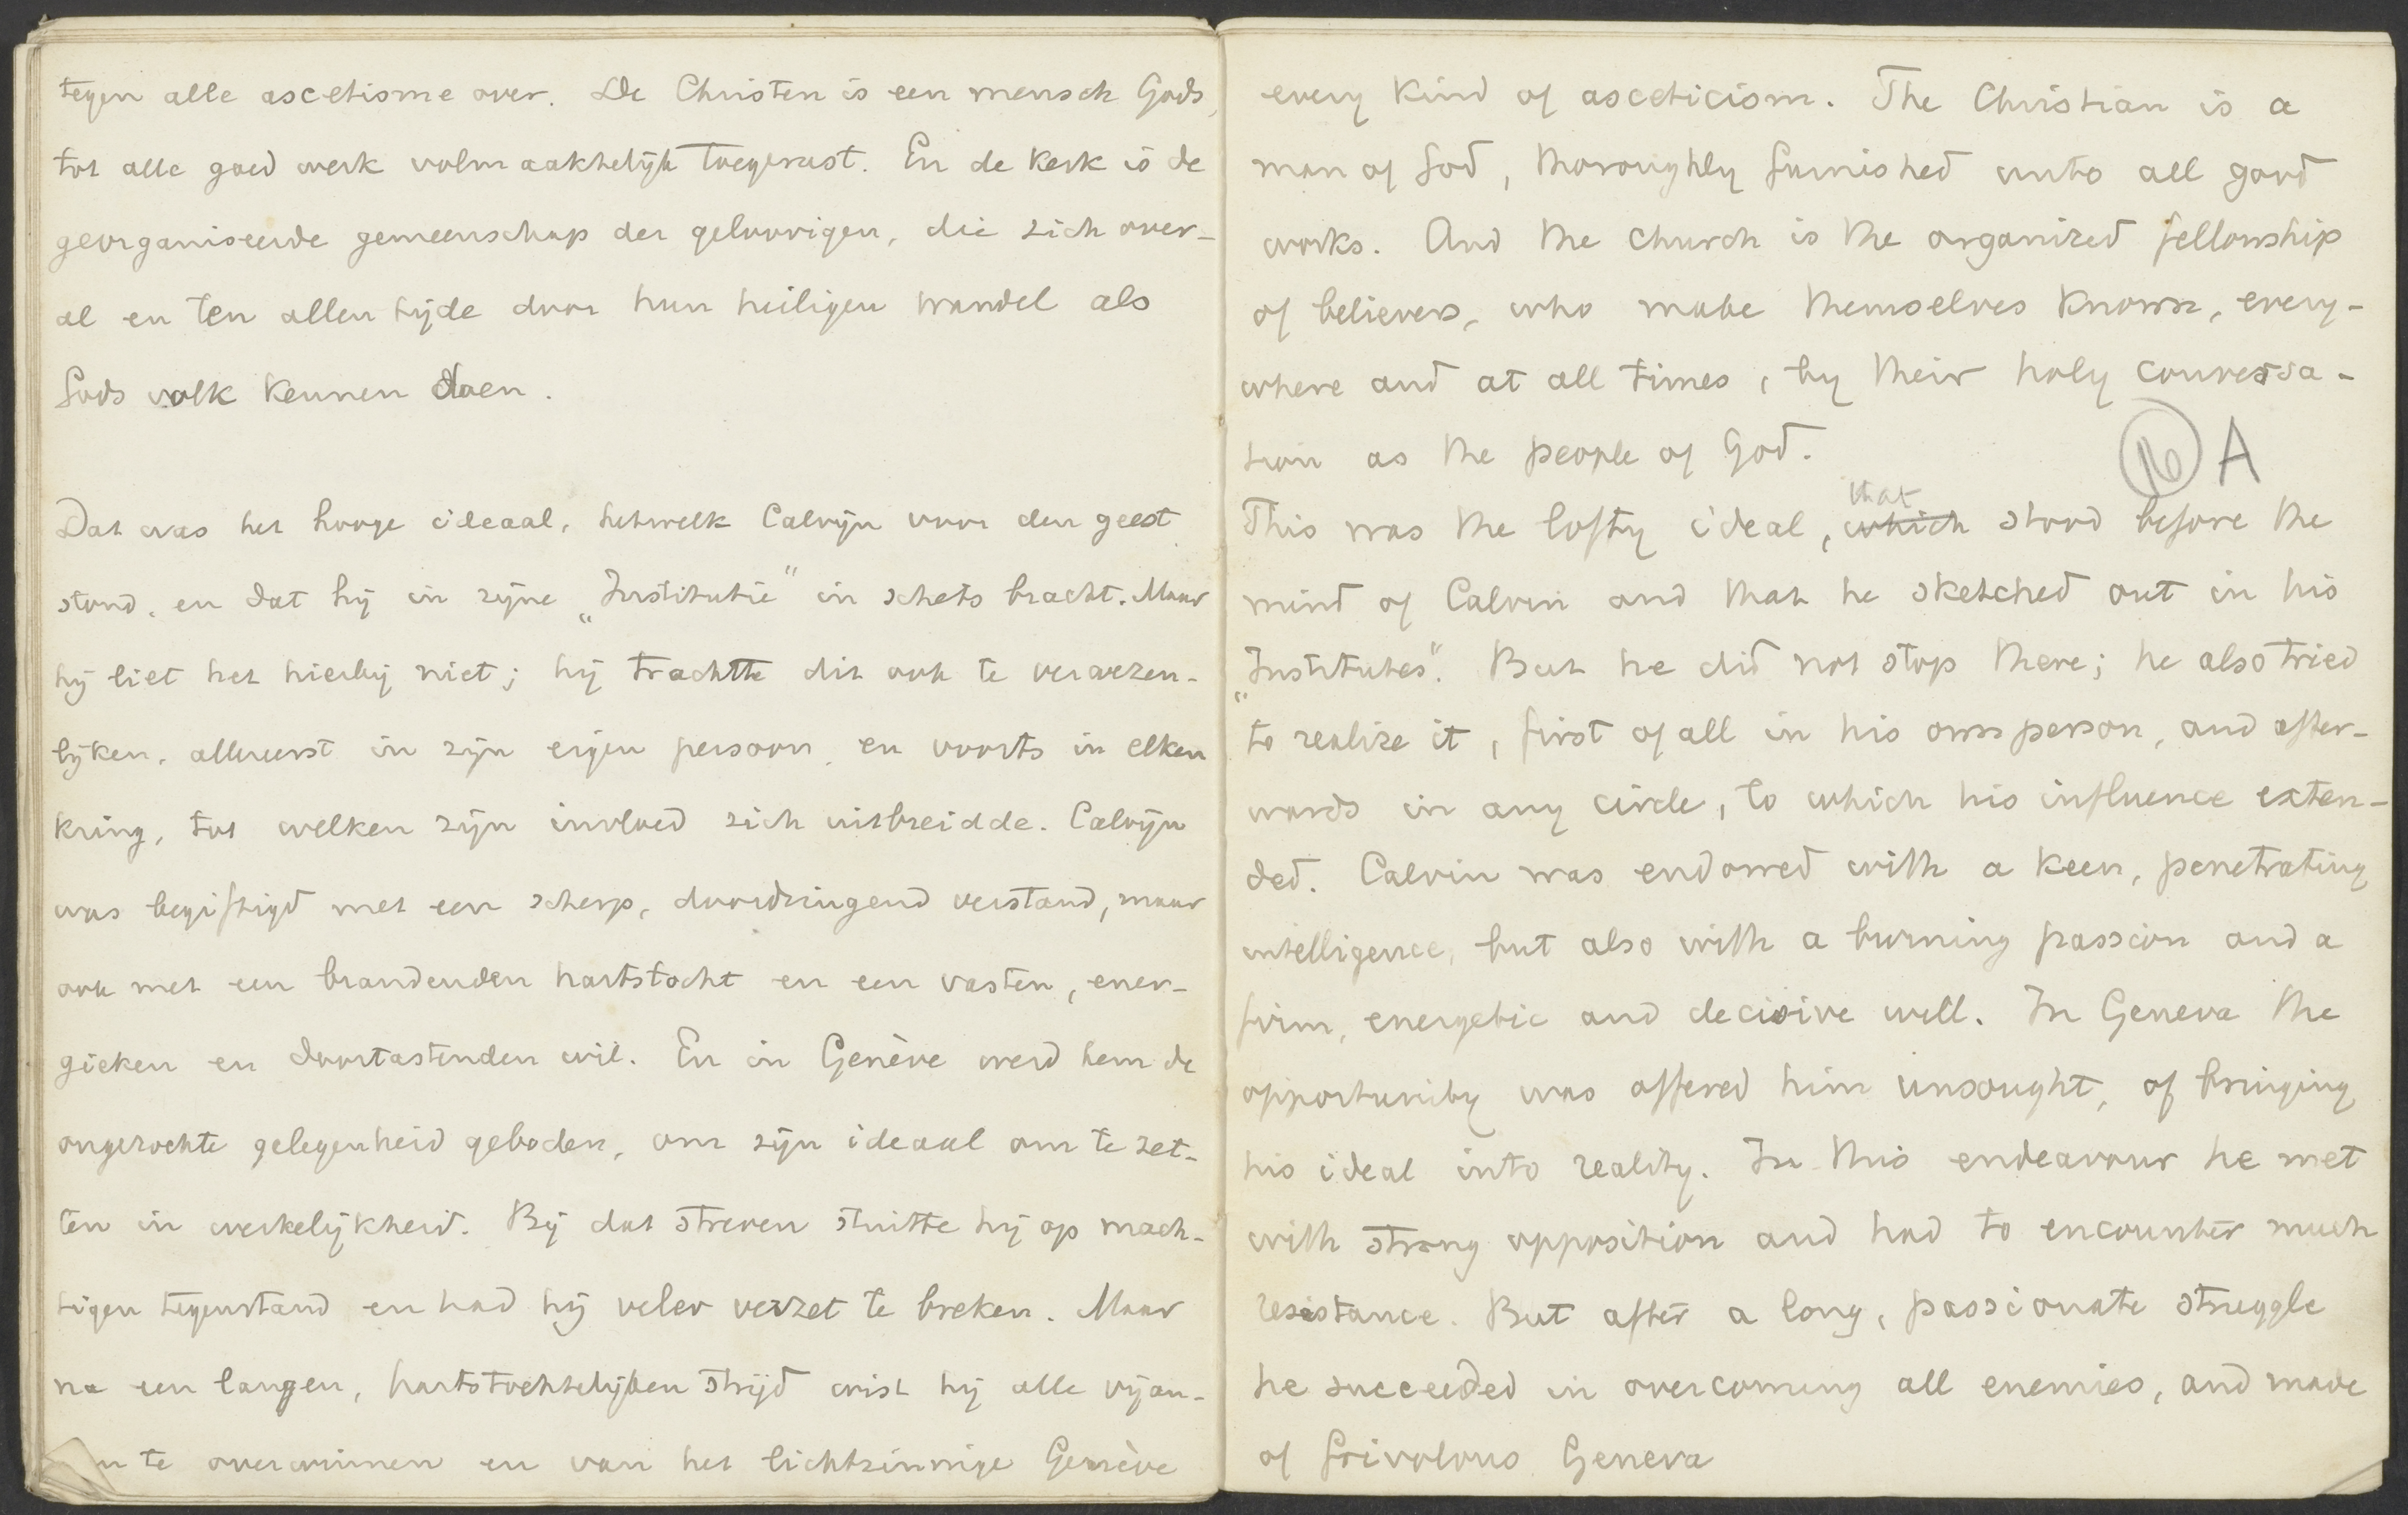 tegen alle ascetisme over. De Christen is een mensch Gods,
tot alle goed werk volmaakhelijk toegerust. En de kerk is de
georganiseerde gemeenschap der geloovigen, die zich over-
al en ten allen tijde door hun heiligen wandel als
Gods volk kennen doen.
Dat was het hooge ideaal, hetwelk Calvijn voor den geest
stond, en dat hij in zijne „Institutie" in schets bracht. Maar
hij liet het hierbij niet; hij trachtte dit ook te verwezen-
lijken, allereerst in zijn eigen persoon en voorts in elken
kring, tot welken zijn invloed zich uitbreidde. Calvijn
was begiftigd met een scherp, doordringend verstand, maar
ook met een brandenden hartstocht en een vasten, ener-
gieken en doortastenden wil. En in Genève werd hem de
ongezochte gelegenheid geboden, om zijn ideaal om te zet-
ten in werkelijkheid. Bij dat streven stuitte hij op mach-
tigen tegenstand en had hij veler verzet te breken. Maar
na een langen, hartstochtelijken strijd wist hij alle vijan-
n te overwinnen en van het lichtzinnige Genève
every kind of asceticism. The Christian is a
man of God, thoroughly furnished unto all good
works. And the church is the organized fellowship
of believers, who make themselves known, every-
where and at all times, by their holy conversa-
tion as the people of God.
16 A
that
This was the lofty ideal, which stood before the
mind of Calvin and that he sketched out in his
„Institutes". But he did not stop there; he also tried
to realize it, first of all in his own person, and after-
wards in any circle, to which his influence exten-
ded. Calvin was endowed with a keen, penetrating
intelligence, but also with a burning passion and a
firm, energetic and decisive will. In Geneva the
opportunity was offered him unsought, of bringing
his ideal into reality. In this endeavour he met
with strong opposition and had to encounter much
resistance. But after a long, passionate struggle
he succeeded in overcoming all enemies, and made
of frivolous Geneva